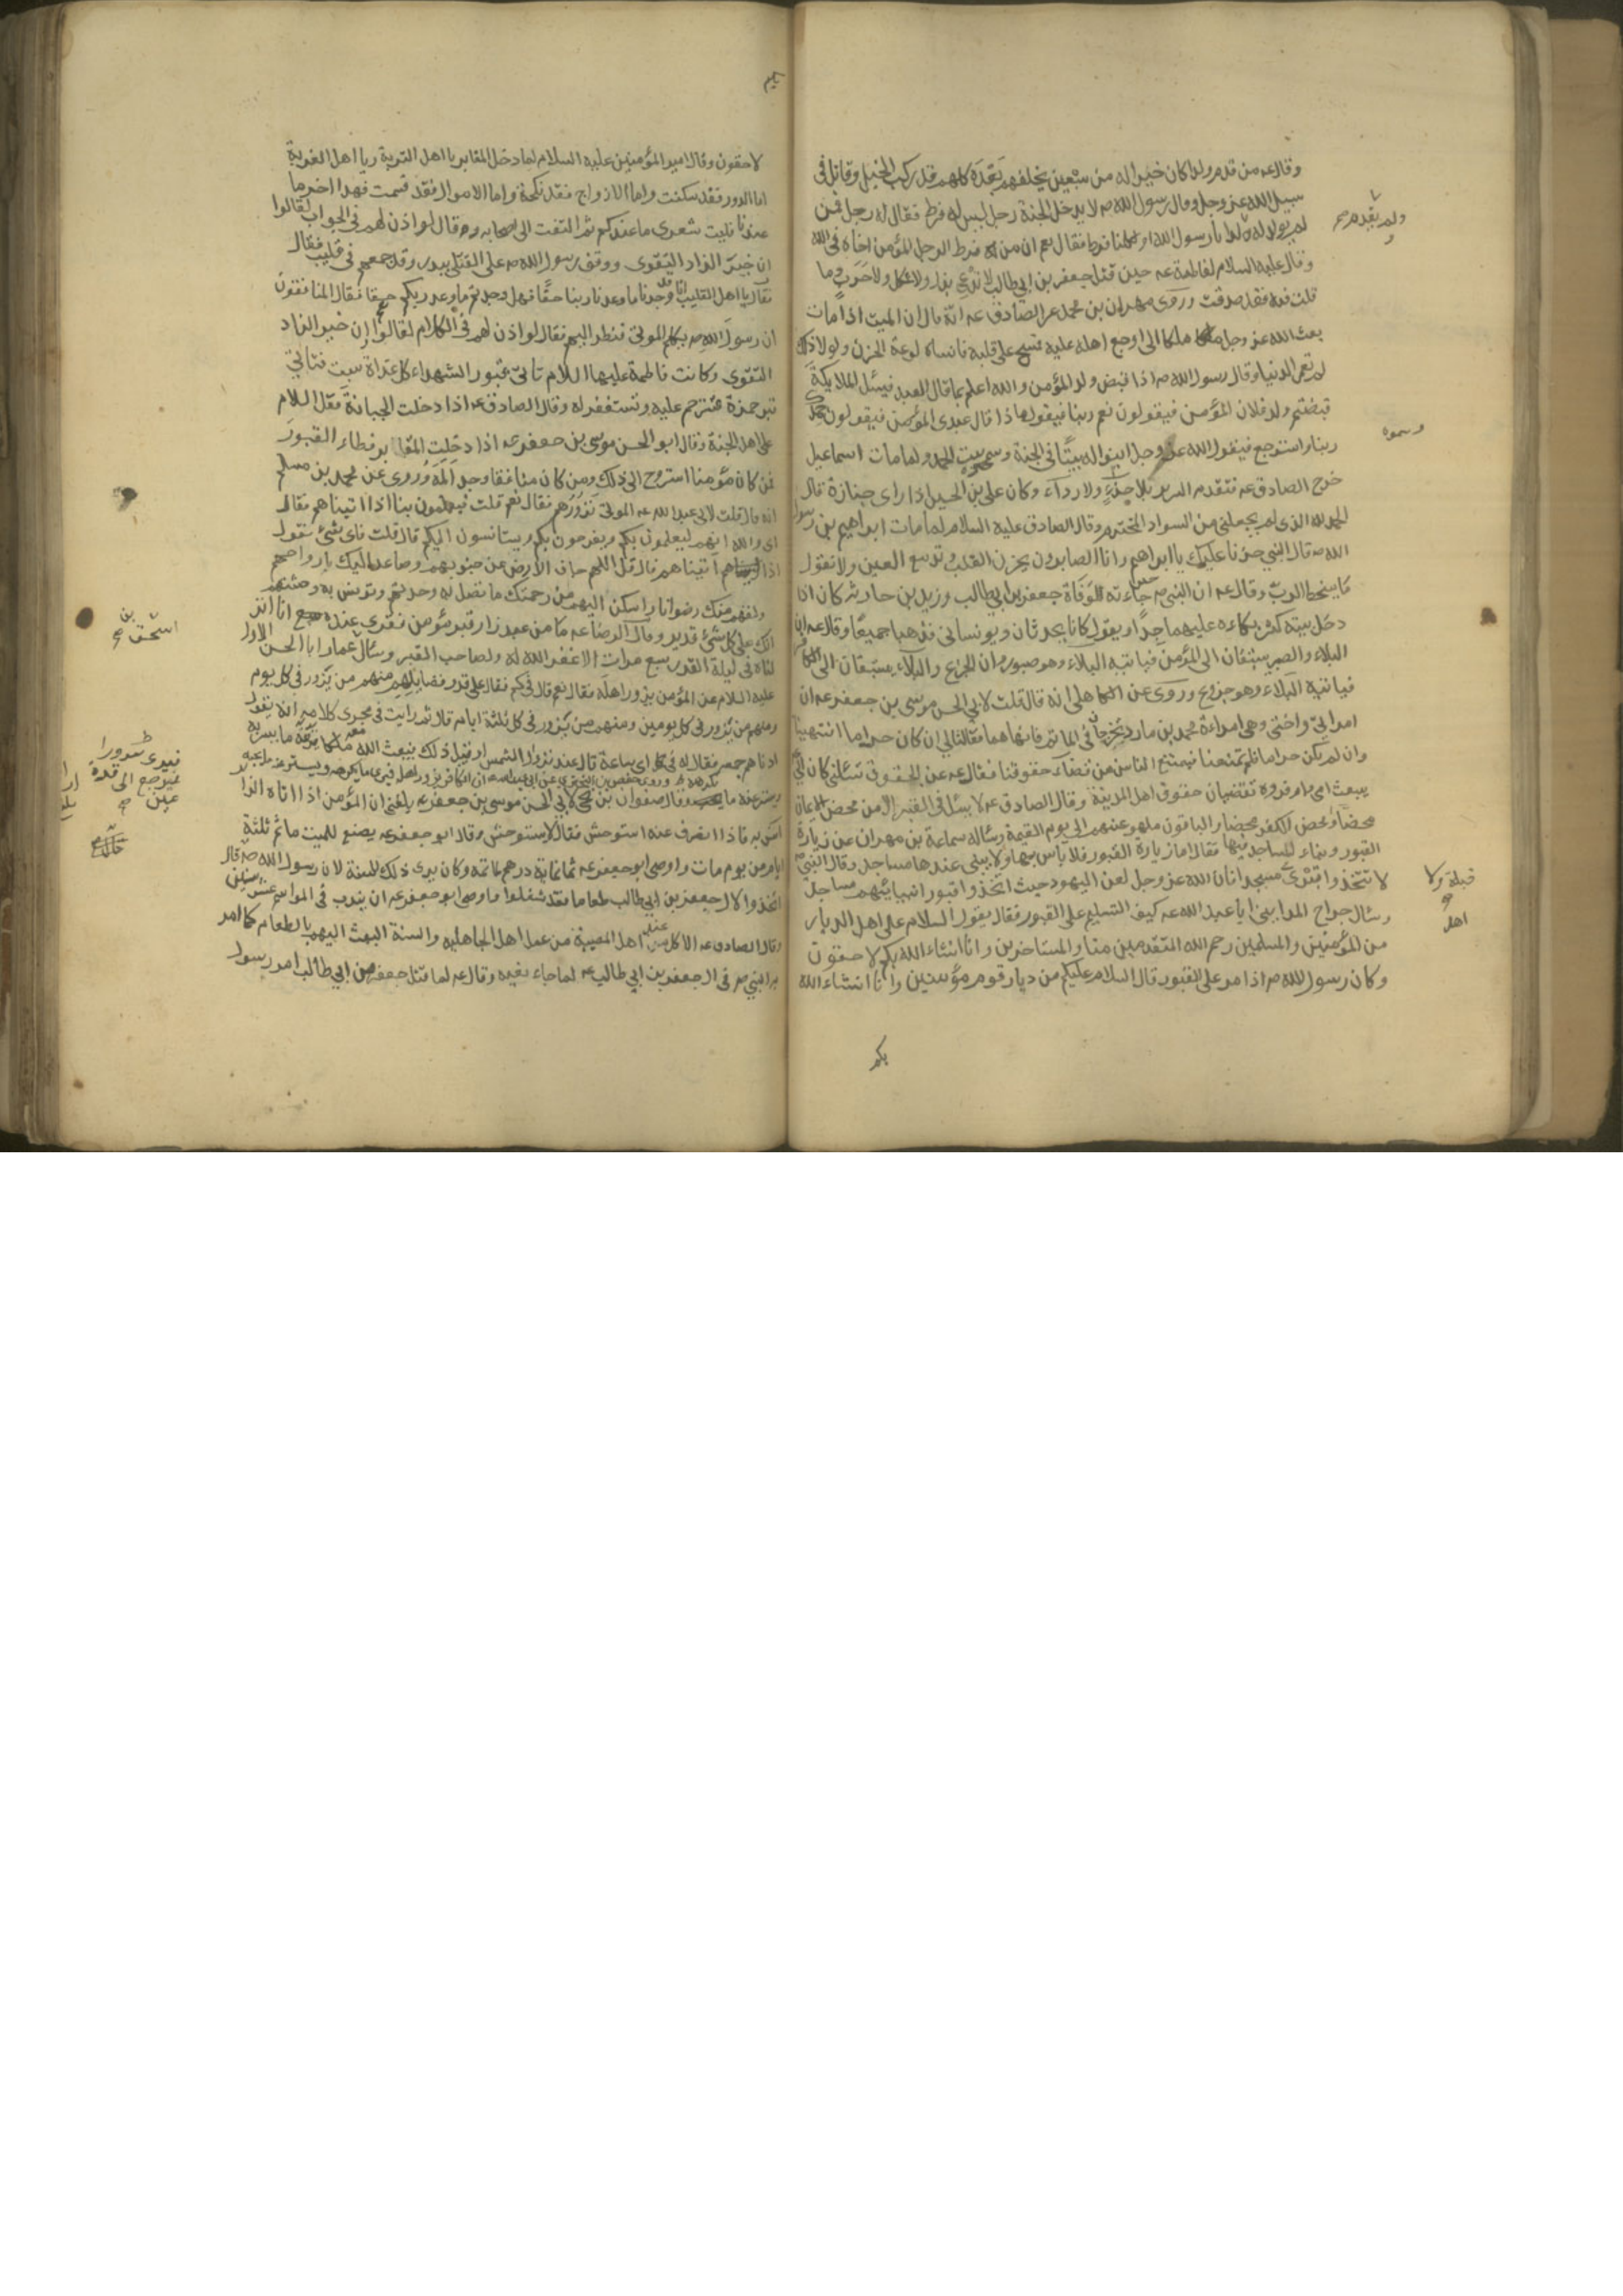 وقال ع من قدم ولدا كان خيرا له من سبعين يخلفهم بعده كلهم قد ركب الخيل وقاتل في
سبيل الله عز وجل وقال رسول الله ص لا يدخل الجنة رجل ليس له فرط فقال له رجل فمن
لم يولد له ولد يا رسول الله او لكلنا فرط فقال نعم ان من فرط الرجل المؤمن اخاه في الله
ولم يقدم
وقال عليه السلام لفاطمة ع حين قتل جعفر بن ابي طالب لا تدعي بذل ولا ثكل ولا حرب وما
قلت فيه فقد صدقت وروى مهران بن محمد عن الصادق ع انه قال ان الميت اذا مات
بعث الله عز وجل ملكا الى اوجع اهله عليه فمسح على قلبه فانساه لوعة الحزن ولولا ذلك
لم تعمر الدنيا وقال رسول الله ص اذا قبض ولد المؤمن والله اعلم بما قال العبد فيسئل الملائكة
قبضتم ولد فلان المؤمن فيقولون نعم ربنا فيقول ماذا قال عبدي المؤمن فيقولون حمدك
ربنا واسترجع فيقول الله عز وجل ابنوا له بيتا في الجنة وسموه بيت الحمد ولما مات اسماعيل
وسموه
خرج الصادق ع فتقدم السرير بلا حذاء ولا رداء وكان علي بن الحسين اذا راى جنازة قال
الحمد لله الذي لم يجعلني من السواد المخترم وقال الصادق عليه السلام لما مات ابراهيم بن رسول
الله ص قال النبي حزنا عليك يا ابراهيم وانا لصابرون يحزن القلب وتدمع العين ولا نقول
ما يسخط الرب وقال ع ان النبي ص حين جاءته وفاة جعفر بن ابي طالب وزيد بن حارثة كان اذا
دخل بيته كثر بكاءه عليهما جدا ويقول كانا يحدثاني ويونساني فذهبا جميعا وقال ع ان
البلاء والصبر يستبقان الى المؤمن فياتيه البلاء وهو صبور وان الجزع والبلاء يستبقان الى الكافر
فياتيه البلاء وهو جزوع وروى عن الكاهلي انه قال قلت لابي الحسن موسى بن جعفر ع ان
امراتي واختي وهي امراة محمد بن مارد تخرجان في الماتم فانهاهما فقالتا لي ان كان حراما انتهينا
وان لم يكن حراما فلم تمنعنا فيمتنع الناس من قضاء حقوقنا فقال ع عن الحقوق تسئلني كان ابي
يبعث امي وام فروة تقضيان حقوق اهل المدينة وقال الصادق ع لا يسئل في القبر الا من محض الايمان
محضا او محض الكفر محضا والباقون ملهو عنهم الى يوم القيمة وساله سماعة بن مهران عن زيارة
القبور وبناء المساجد فيها فقال اما زيارة القبور فلا باس بها ولا يبنى عندها مساجد وقال النبي ص
لا تتخذوا قبري مسجدا فان الله عز وجل لعن اليهود حيث اتخذوا قبور انبيائهم مساجد
قبلة ولا
وسال جراح المدايني ابا عبد الله ع كيف التسليم على القبور فقال يقول السلام على اهل الديار
اهل
من المؤمنين والمسلمين رحم الله المتقدمين منا والمستاخرين وانا انشاء الله بكم لاحقون
وكان رسول الله ص اذا مر على القبور قال السلام عليكم من ديار قوم مؤمنين وانا انشاء الله
بكم
بكم
لاحقون وقال امير المؤمنين عليه السلام لما دخل المقابر يا اهل التربة ويا اهل الغربة
اما الدور فقد سكنت واما الازواج فقد نكحت واما الاموال فقد قسمت فهذا اخر ما
عندنا فليت شعري ما عندكم ثم التفت الى اصحابه وقال لو اذن لهم في الجواب لقالوا
ان خير الزاد التقوى ووقف رسول الله ص على القتلى ببدر وقد جمعهم في قليب فقال
فقال يا اهل القليب انا قد وجدنا ما وعدنا ربنا حقا فهل وجدتم ما وعد ربكم حقا فقال المنافقون
ان رسول الله ص يكلم الموتى فنظر اليهم فقال لو اذن لهم في الكلام لقالوا ان خير الزاد
التقوى وكانت فاطمة عليها السلام تاتي قبور الشهداء كل غداة سبت فتاتي
قبر حمزة فتترحم عليه وتستغفر له وقال الصادق ع اذا دخلت الجبانة فقل السلام
على اهل الجنة وقال ابو الحسن موسى بن جعفر ع اذا دخلت المقابر فطاء القبور
فمن كان مؤمنا استروح الى ذلك ومن كان منافقا وجد المه وروى عن محمد بن مسلم
انه قال قلت لابي عبد الله ع الموتى نزورهم فقال نعم قلت فيعلمون بنا اذا اتيناهم فقال
اي والله انهم ليعلمون بكم ويفرحون بكم ويستانسون اليكم قال قلت فاي شئ نقول
اذا اتيناهم قال قل اللهم جاف الارض عن جنوبهم وصاعد اليك ارواحهم
ولقهم منك رضوانا واسكن اليهم من رحمتك ما تصل به وحدتهم وتونس به وحشتهم
انك على كل شئ قدير وقال الرضا ع ما من عبد زار قبر مؤمن فقرى عنده انا انز
لناه في ليلة القدر سبع مرات الا غفر الله له ولصاحب القبر وسئال عمار ابا الحسن الاول
اسحق بن
عليه السلام عن المؤمن يزور اهله فقال نعم قال في كم فقال على قدر فضايلهم منهم من يزور في كل يوم
ومنهم من يزور في كل يومين ومنهم من يزور في كل ثلثة ايام قال ثم رايت في مجرى كلامه انه يقول
ادناهم جمعة فقال له في اي ساعة قال عند زوال الشمس او قبيل ذلك فيبعث الله معه ملكا يريه ما يسر به
ويستر عنه ما يكرهه وروى حفص بن البختري عن ابي عبد الله ع ان الكافر يزور اهله فيرى ما يكرهه ويستر عنه ما يحب
فيرى سرورا
ويرجع الى قرة
عين
وقال صفوان بن يحيى لابي الحسن موسى بن جعفر ع بلغني ان المؤمن اذا اتاه الزاير
انس به فاذا انصرف عنه استوحش فقال لا يستوحش وقال ابو جعفر ع يصنع للميت ماتم ثلثة
ايام من يوم مات واوصى ابو جعفر ع بثمانماية درهم لماتمه وكان يرى ذلك للسنة لان رسول الله ص قال
اتخذوا لال جعفر بن ابي طالب طعاما فقد شغلوا واوصى ابو جعفر ع ان يندب في المواسم عشر سنين
وقال الصادق ع الاكل عند اهل المصيبة من عمل اهل الجاهلية والسنة البعث اليهم بالطعام كما امر
به النبي ص في ال جعفر بن ابي طالب ع لما جاء نعيه وقال ع لما قتل جعفر بن ابي طالب امر رسول